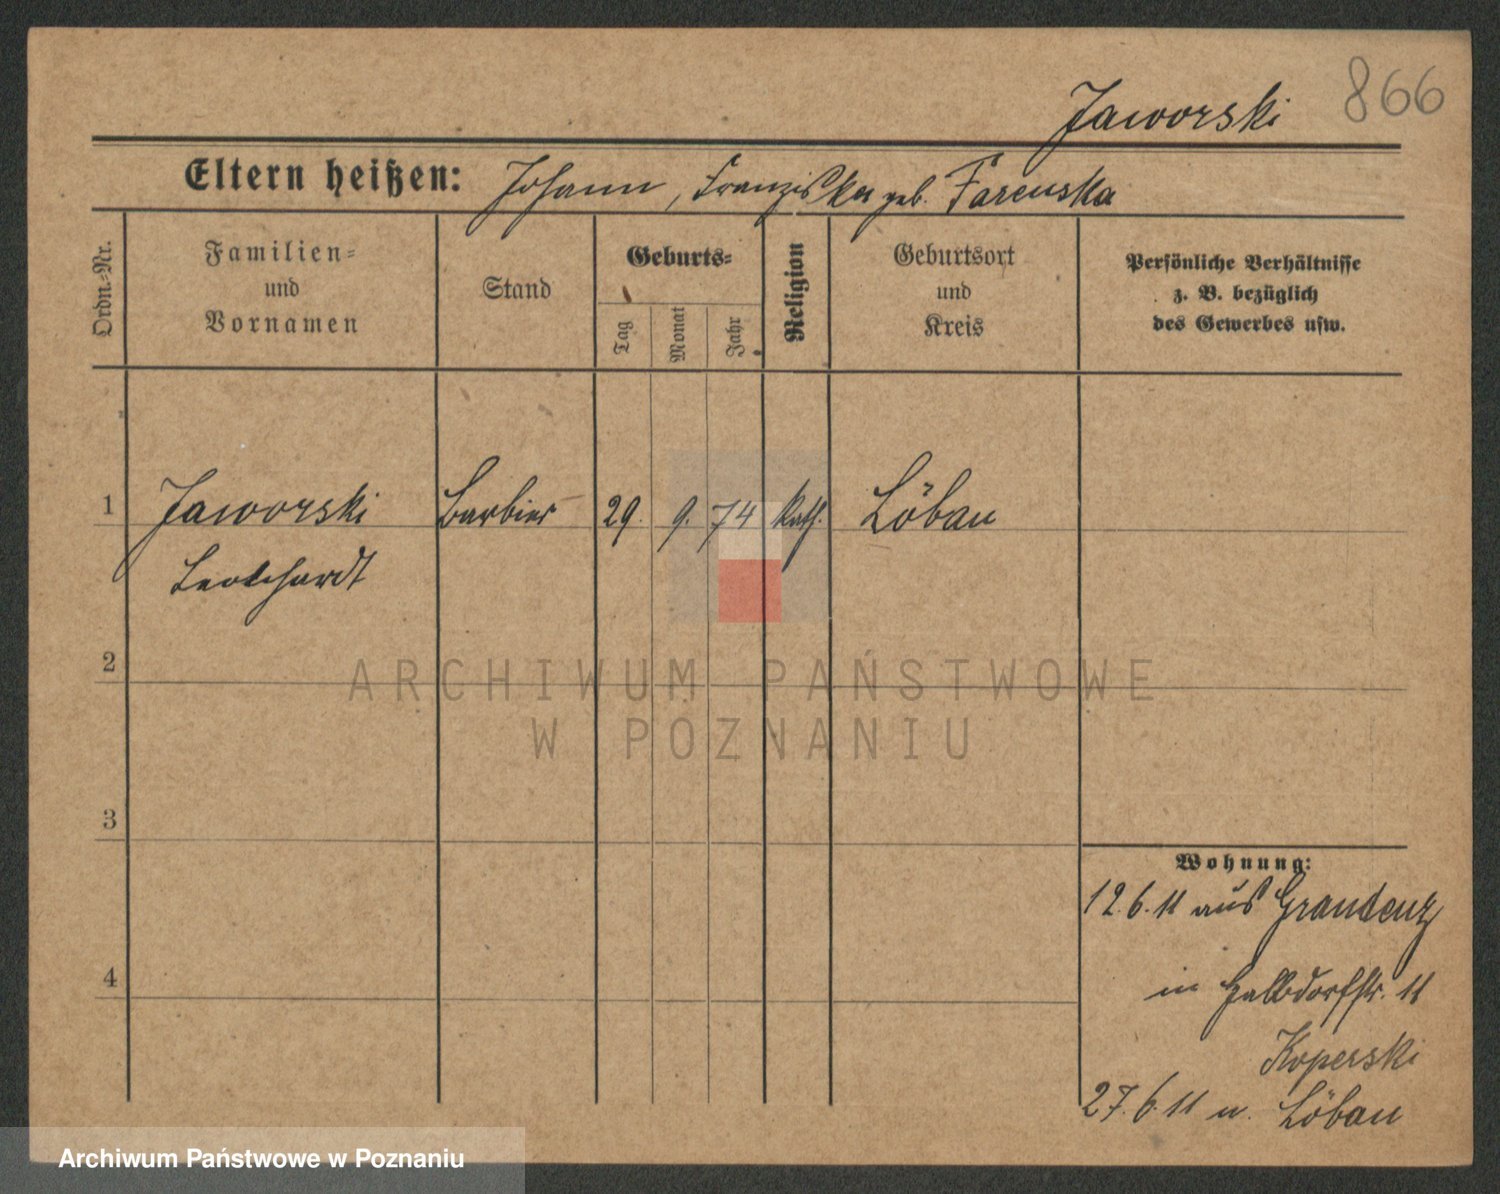 866
Jaworski
Eltern heißen: Johann, Franziska geb. Farenska
Ordn.-Nr.
Familien-
und
Vornamen
Stand
Geburts-
Tag
Monat
Jahr
Religion
Geburtsort
und
Kreis
Persönliche Verhältnisse
z. B. bezüglich
des Gewerbes usw.
1 Jaworski Barbier 29. 9. 74 kath. Löbau
2
ARCHIWUM PAŃSTWOWE
W POZNANIU
3
Wohnung:
12.6.11 aus Graudenz
4
in Halbdorfstr. 11
Koperski
27.6.11 n. Löbau
Archiwum Państwowe w Poznaniu